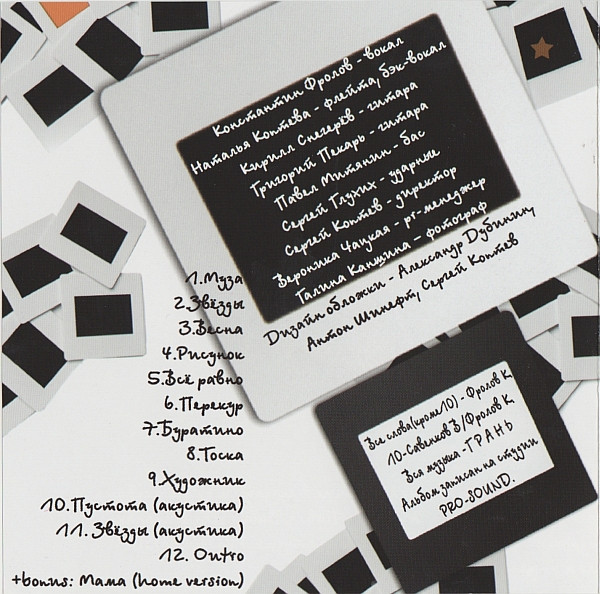 Константин Фролов - вокал
Наталья Коптева - флейта, бэк-вокал
Кирилл Снегерёв - гитара
Григорий Пекарь - гитара
Павел Митянин - бас
Сергей Глухих - ударные
Сергей Коптев - директор
Вероника Чацкая - pr-менеджер
Галина Канщина - фотограф
Дизайн обложки - Александр Дубинин,
Антон Шинефт, Сергей Коптев
1.Муза
2.Звёзды
3.Весна
4.Рисунок
5.Всё равно
6.Перекур
7.Буратино
8.Тоска
9.Художник
10.Пустота (акустика)
11. Звёзды (акустика)
12. Outro
+bonus: Мама (home version)
Все слова(кроме10) - Фролов К.
10-Савенков В/Фролов К.
Вся музыка - ГРАНЬ
Альбом записан на студии
PRO-SOUND.